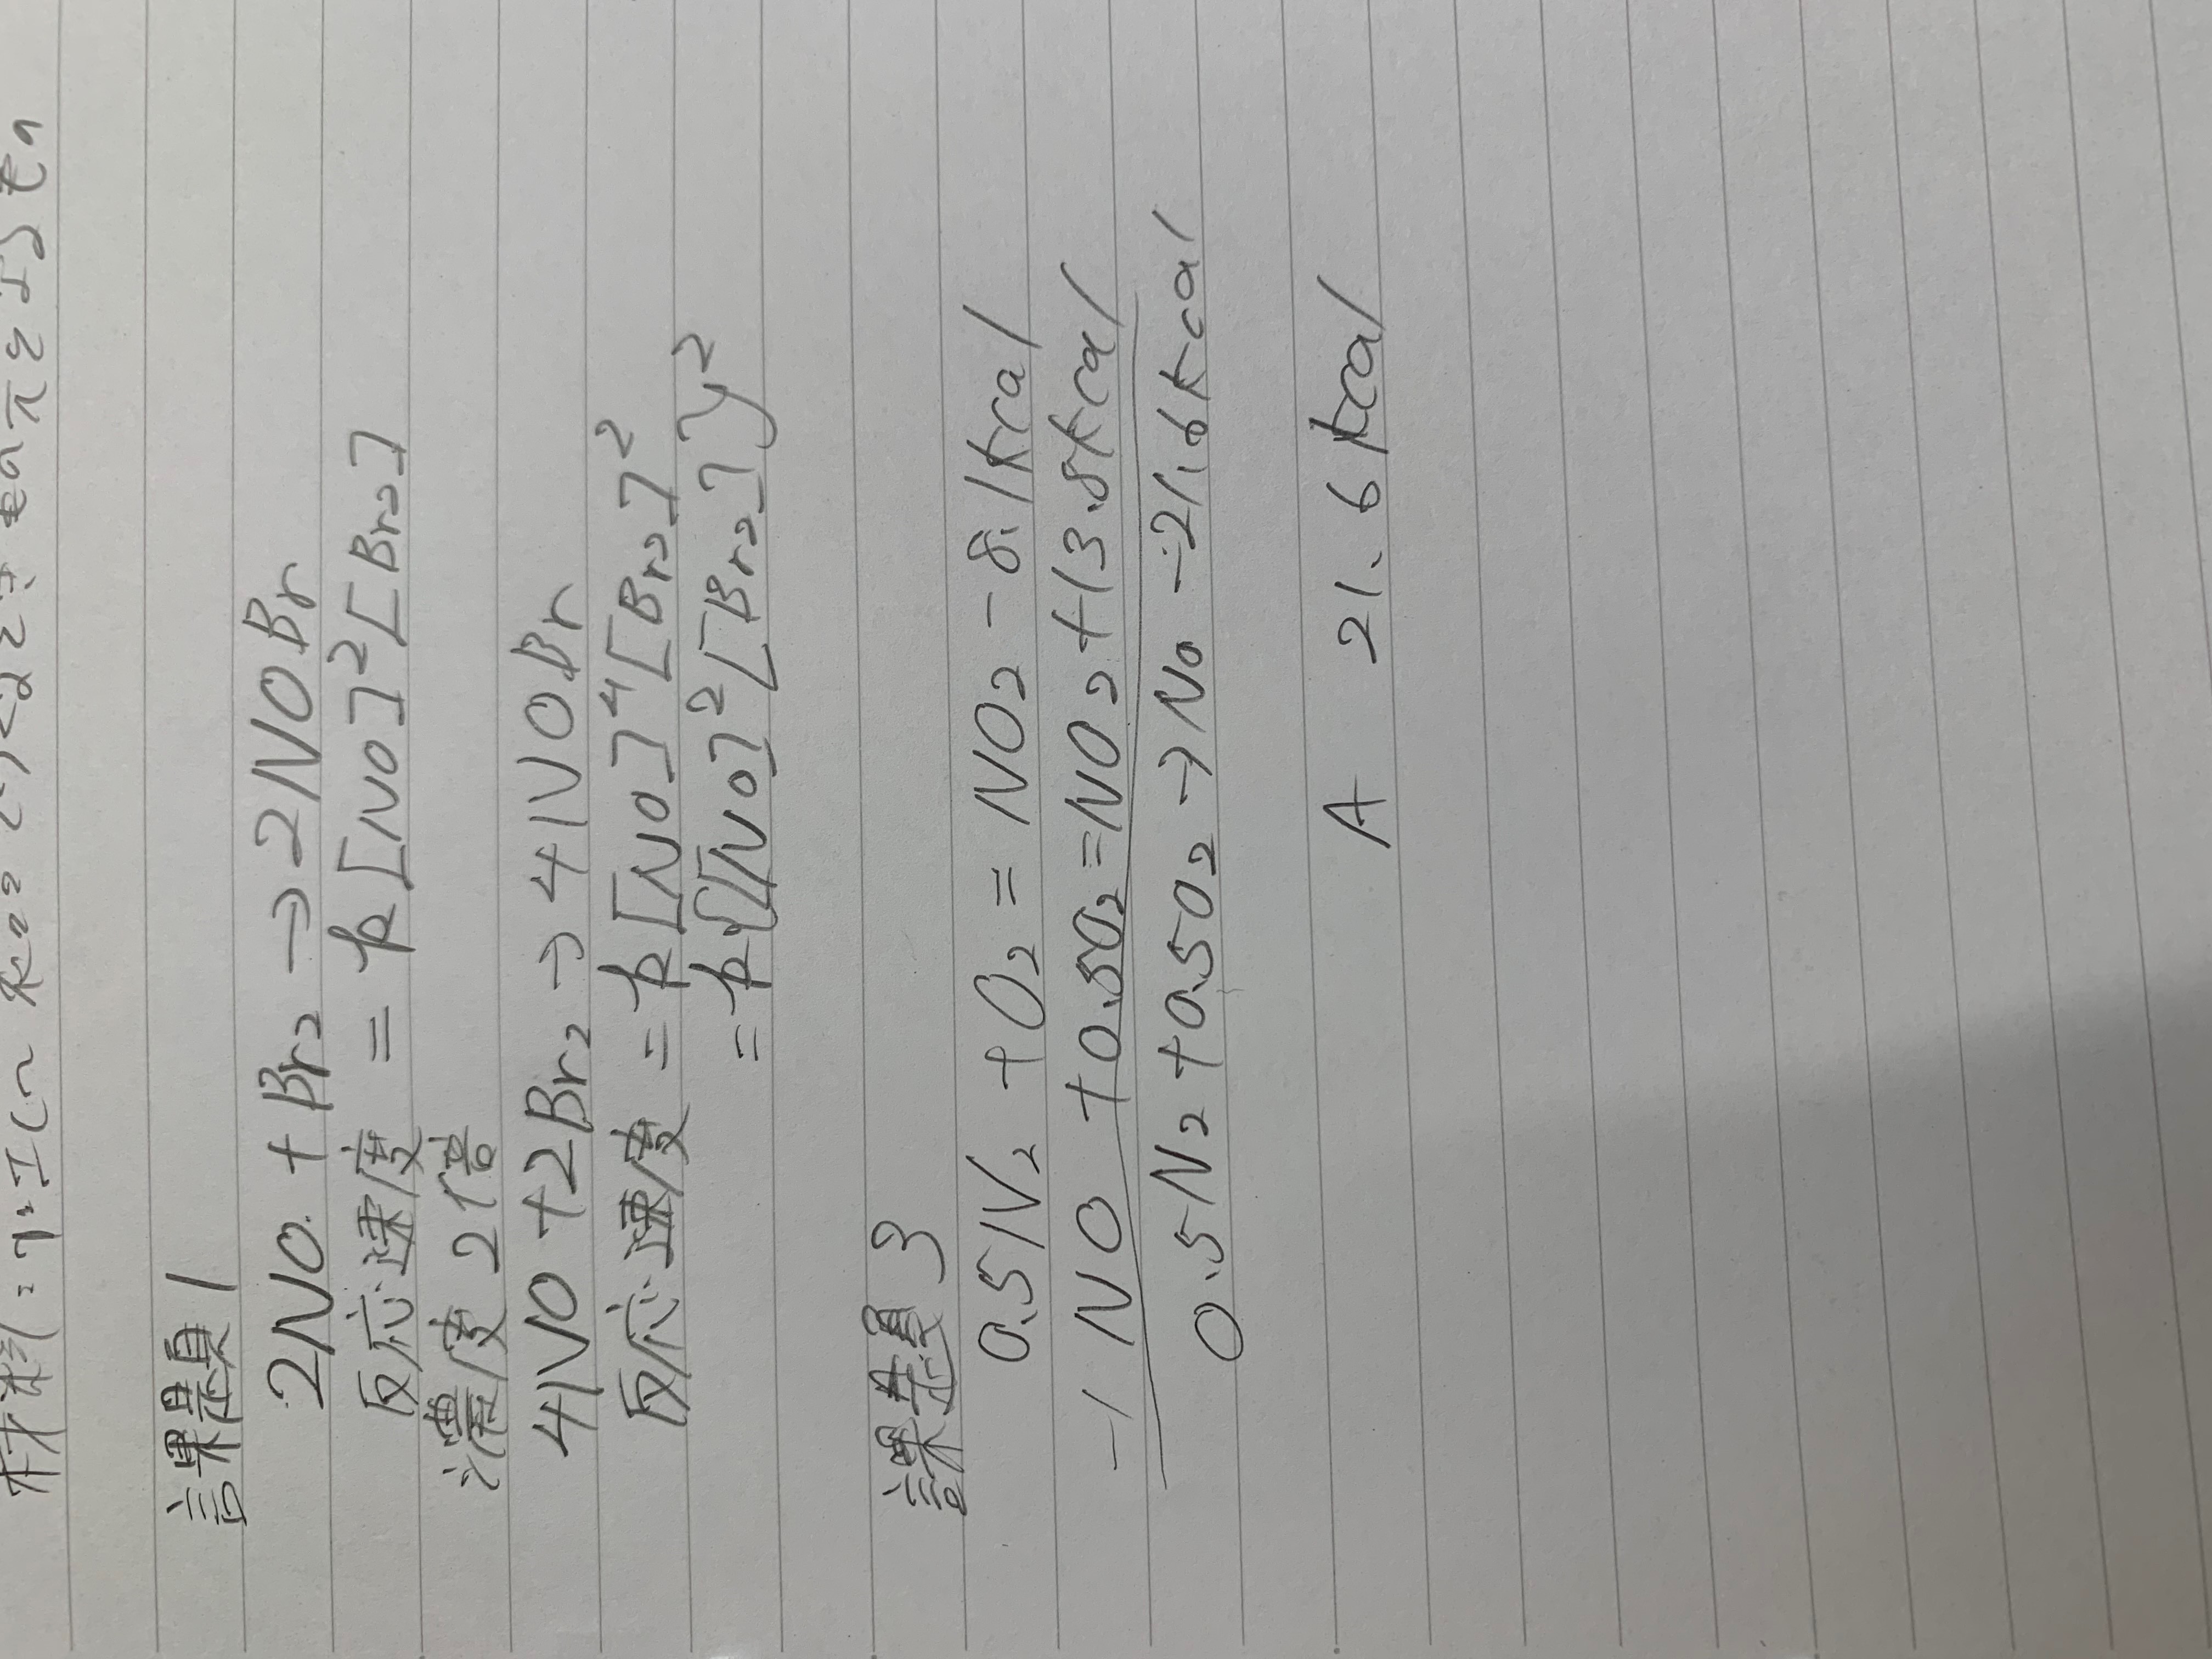 材料:
課題1
2NO + Br₂ → 2NOBr
反応速度 = k[NO]²[Br₂]
濃度2倍
4NO + 2Br₂ → 4NOBr
反応速度 = k[NO]⁴[Br₂]²
= k{[NO]²[Br₂]}²
課題3
0.5N₂ + O₂ = NO₂ - 8.1kcal
-) NO + 0.5O₂ = NO₂ + 13.8kcal
0.5N₂ + 0.5O₂ → NO - 21.6kcal
A 21.6kcal